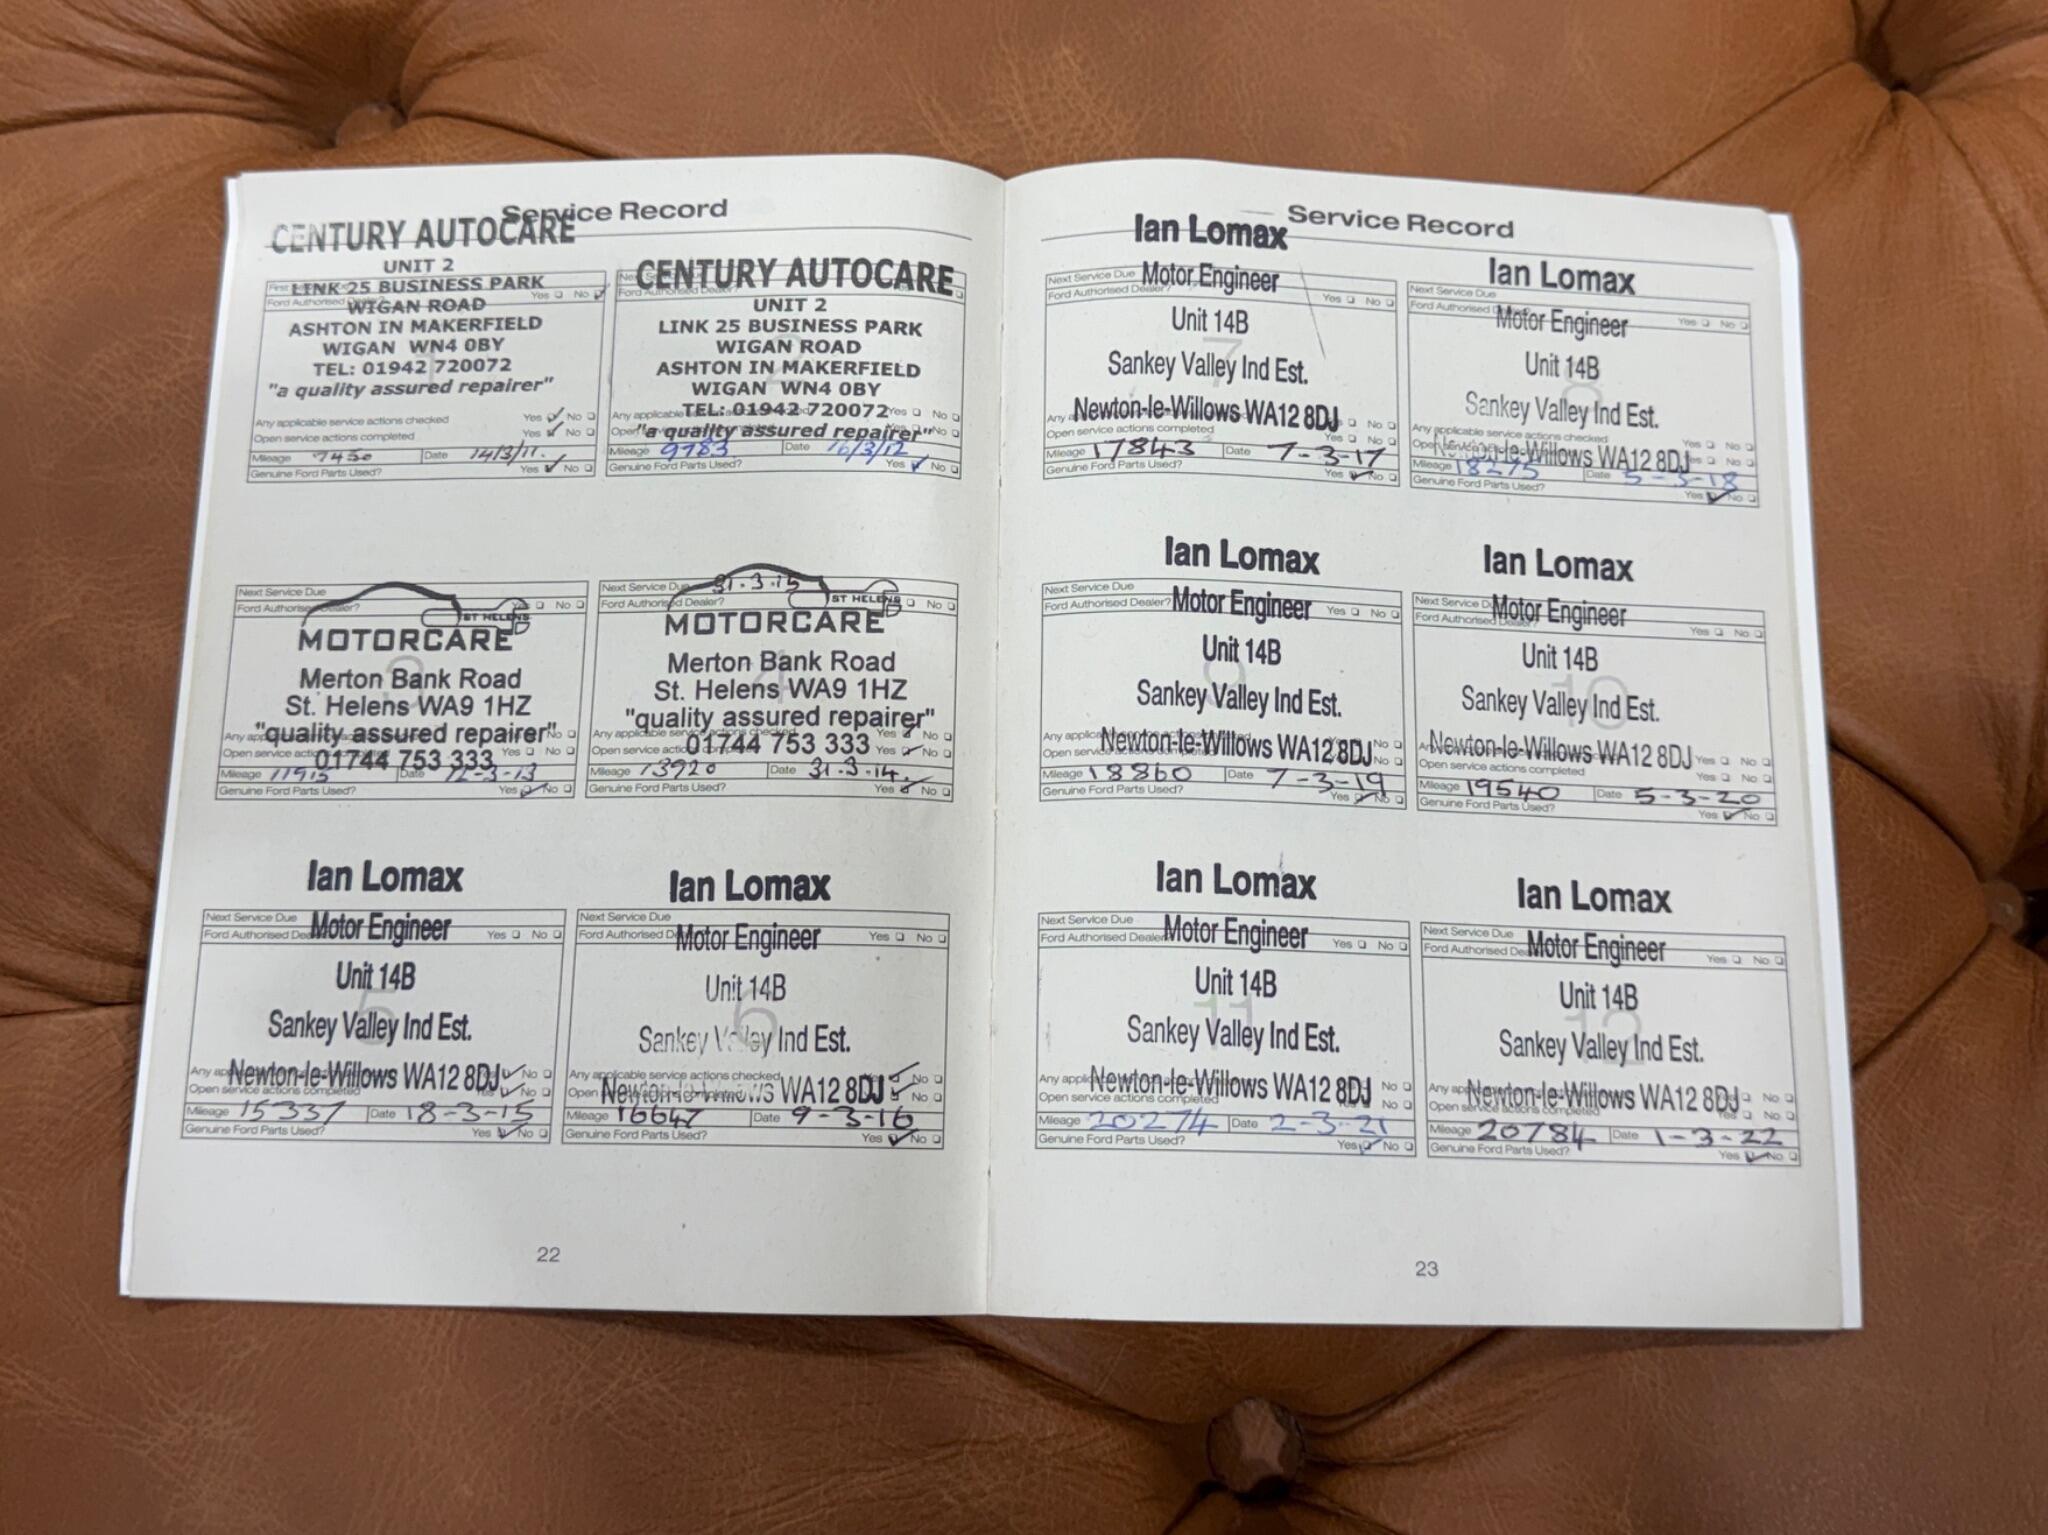 Service Record
CENTURY AUTOCARE
UNIT 2
LINK 25 BUSINESS PARK
WIGAN ROAD
ASHTON IN MAKERFIELD
WIGAN WN4 0BY
TEL: 01942 720072
"a quality assured repairer"
Ford Authorised Dealer?
Yes No
Any applicable service actions checked Yes No
Open service actions completed Yes No
Mileage 7450 Date 14/3/11.
Genuine Ford Parts Used? Yes No
CENTURY AUTOCARE
UNIT 2
LINK 25 BUSINESS PARK
WIGAN ROAD
ASHTON IN MAKERFIELD
WIGAN WN4 0BY
TEL: 01942 720072
"a quality assured repairer"
Yes No
Mileage 9783 Date 16/3/12
Genuine Ford Parts Used? Yes No
Next Service Due
Ford Authorised Dealer? Yes No
ST HELENS
MOTORCARE
3
Merton Bank Road
St. Helens WA9 1HZ
"quality assured repairer"
01744 753 333
Yes No
Mileage 11915 Date 12-3-13
Genuine Ford Parts Used? Yes No
Next Service Due 31-3-15
Ford Authorised Dealer? No
ST HELENS
MOTORCARE
4
Merton Bank Road
St. Helens WA9 1HZ
"quality assured repairer"
01744 753 333
Any applicable service actions checked Yes No
Yes No
Mileage 13920 Date 31-3-14.
Genuine Ford Parts Used? Yes No
Ian Lomax
Next Service Due
Motor Engineer
Yes No
Unit 14B
5
Sankey Valley Ind Est.
Newton-le-Willows WA12 8DJ
No
Open service actions completed No
Mileage 15337 Date 18-3-15
Genuine Ford Parts Used? Yes No
Ian Lomax
Next Service Due
Motor Engineer
Yes No
Unit 14B
6
Sankey Valley Ind Est.
Any applicable service actions checked No
Newton-le-Willows WA12 8DJ
No
Mileage 16647 Date 9-3-16
Genuine Ford Parts Used? Yes No
22
Service Record
Ian Lomax
Next Service Due
Motor Engineer
Ford Authorised Dealer? Yes No
Unit 14B
7
Sankey Valley Ind Est.
Newton-le-Willows WA12 8DJ
No
Open service actions completed Yes No
Mileage 17843 Date 7-3-17
Genuine Ford Parts Used? Yes No
Ian Lomax
Next Service Due
Motor Engineer
Yes No
Unit 14B
8
Sankey Valley Ind Est.
Any applicable service actions checked Yes No
Newton-le-Willows WA12 8DJ
No
Mileage 18275 Date 5-3-18
Genuine Ford Parts Used? Yes No
Ian Lomax
Next Service Due
Motor Engineer
Ford Authorised Dealer? Yes No
Unit 14B
9
Sankey Valley Ind Est.
Newton-le-Willows WA12 8DJ
No
No
Mileage 18860 Date 7-3-19
Genuine Ford Parts Used? Yes No
Ian Lomax
Motor Engineer
Yes No
Unit 14B
10
Sankey Valley Ind Est.
Newton-le-Willows WA12 8DJ
Yes No
Open service actions completed Yes No
Mileage 19540 Date 5-3-20
Genuine Ford Parts Used? Yes No
Ian Lomax
Next Service Due
Motor Engineer
Ford Authorised Dealer Yes No
Unit 14B
11
Sankey Valley Ind Est.
Newton-le-Willows WA12 8DJ
No
Open service actions completed No
Mileage 20274 Date 2-3-21
Genuine Ford Parts Used? Yes No
Ian Lomax
Next Service Due
Motor Engineer
Yes No
Unit 14B
12
Sankey Valley Ind Est.
Newton-le-Willows WA12 8DJ
No
Open service actions completed Yes No
Mileage 20784 Date 1-3-22
Genuine Ford Parts Used? Yes No
23